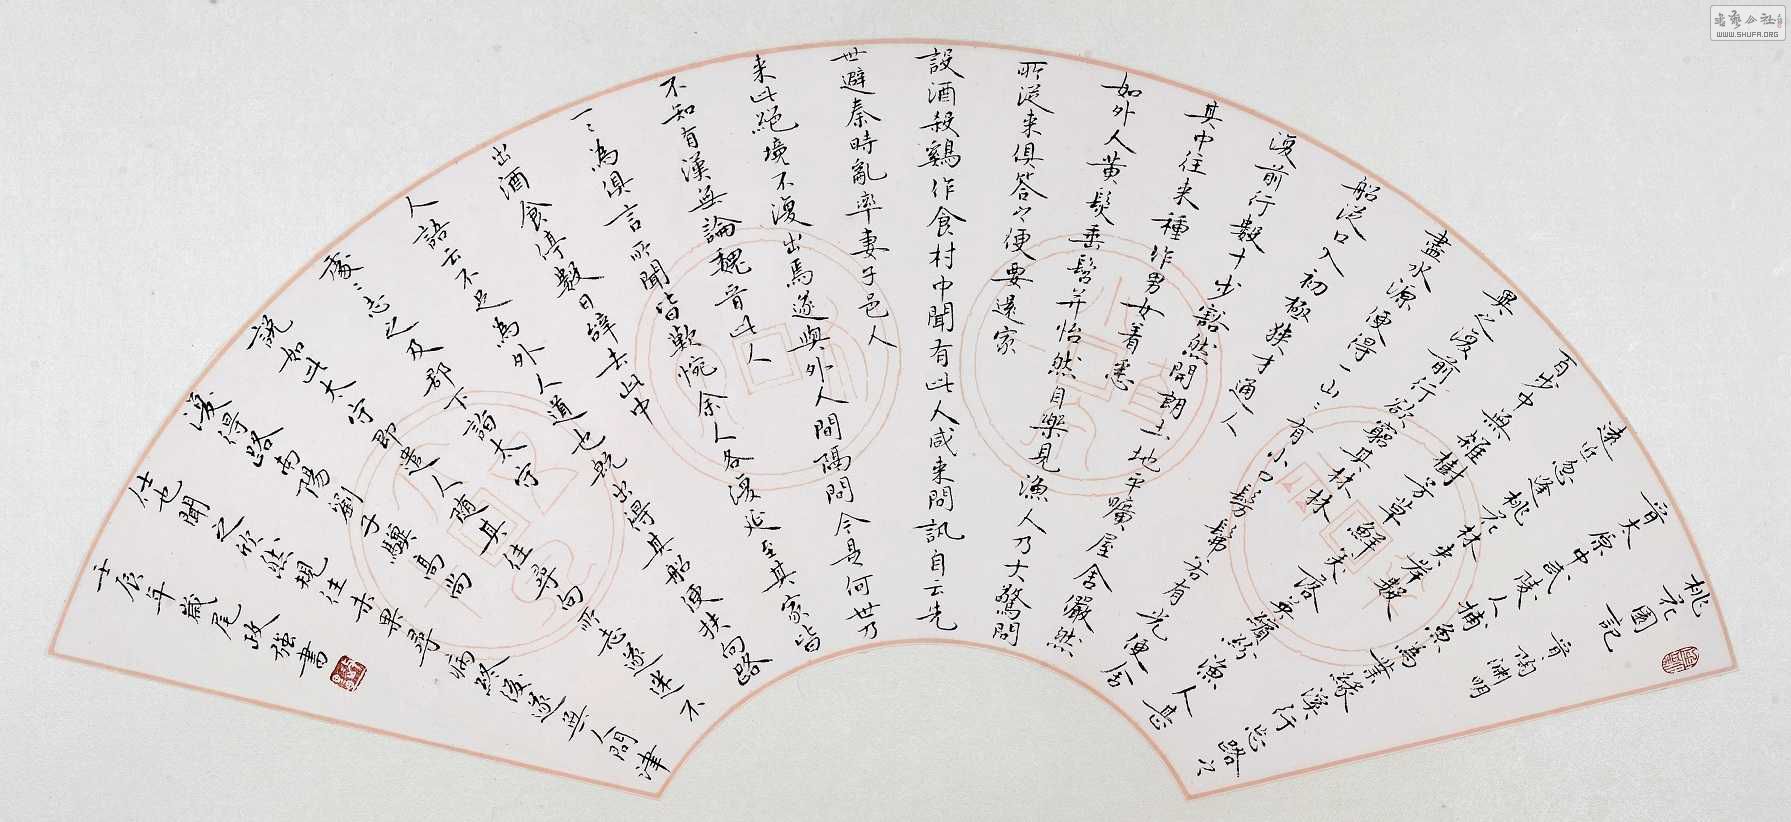 桃花園記 晉陶渊明
晉太原中武陵人捕魚為業緣溪行忘路之
遠近忽逢桃花林夾岸數
百步中無雜樹芳草鮮美落英繽紛漁人甚
異之復前行欲窮其林林
盡水源便得一山〻有小口髣髴若有光便舍
船從口入初極狹才通人
復前行數十步豁然開朗土地平曠屋舍儼然
其中往來種作男女着悉
如外人黃髮垂髫并怡然自樂見漁人乃大驚問
所從来俱答之便要還家
設酒殺鷄作食村中聞有此人咸来問訊自云先
世避秦時亂率妻子邑人
来此絕境不復出焉遂與外人間隔問今是何世乃
不知有漢無論魏晉此人
一〻為俱言所聞皆歎惋余人各復延至其家皆
出酒食停數日辭去此中
人語云不足為外人道也既出得其船便扶向路
處〻志之及郡下詣太守
說如此太守即遣人隨其往尋向所志遂迷不
復得路南陽劉子驥高尚
仕也聞之欣然規往未果尋病終後遂無人問津
壬辰年歲尾政強書
書藝公社
WWW.SHUFA.ORG